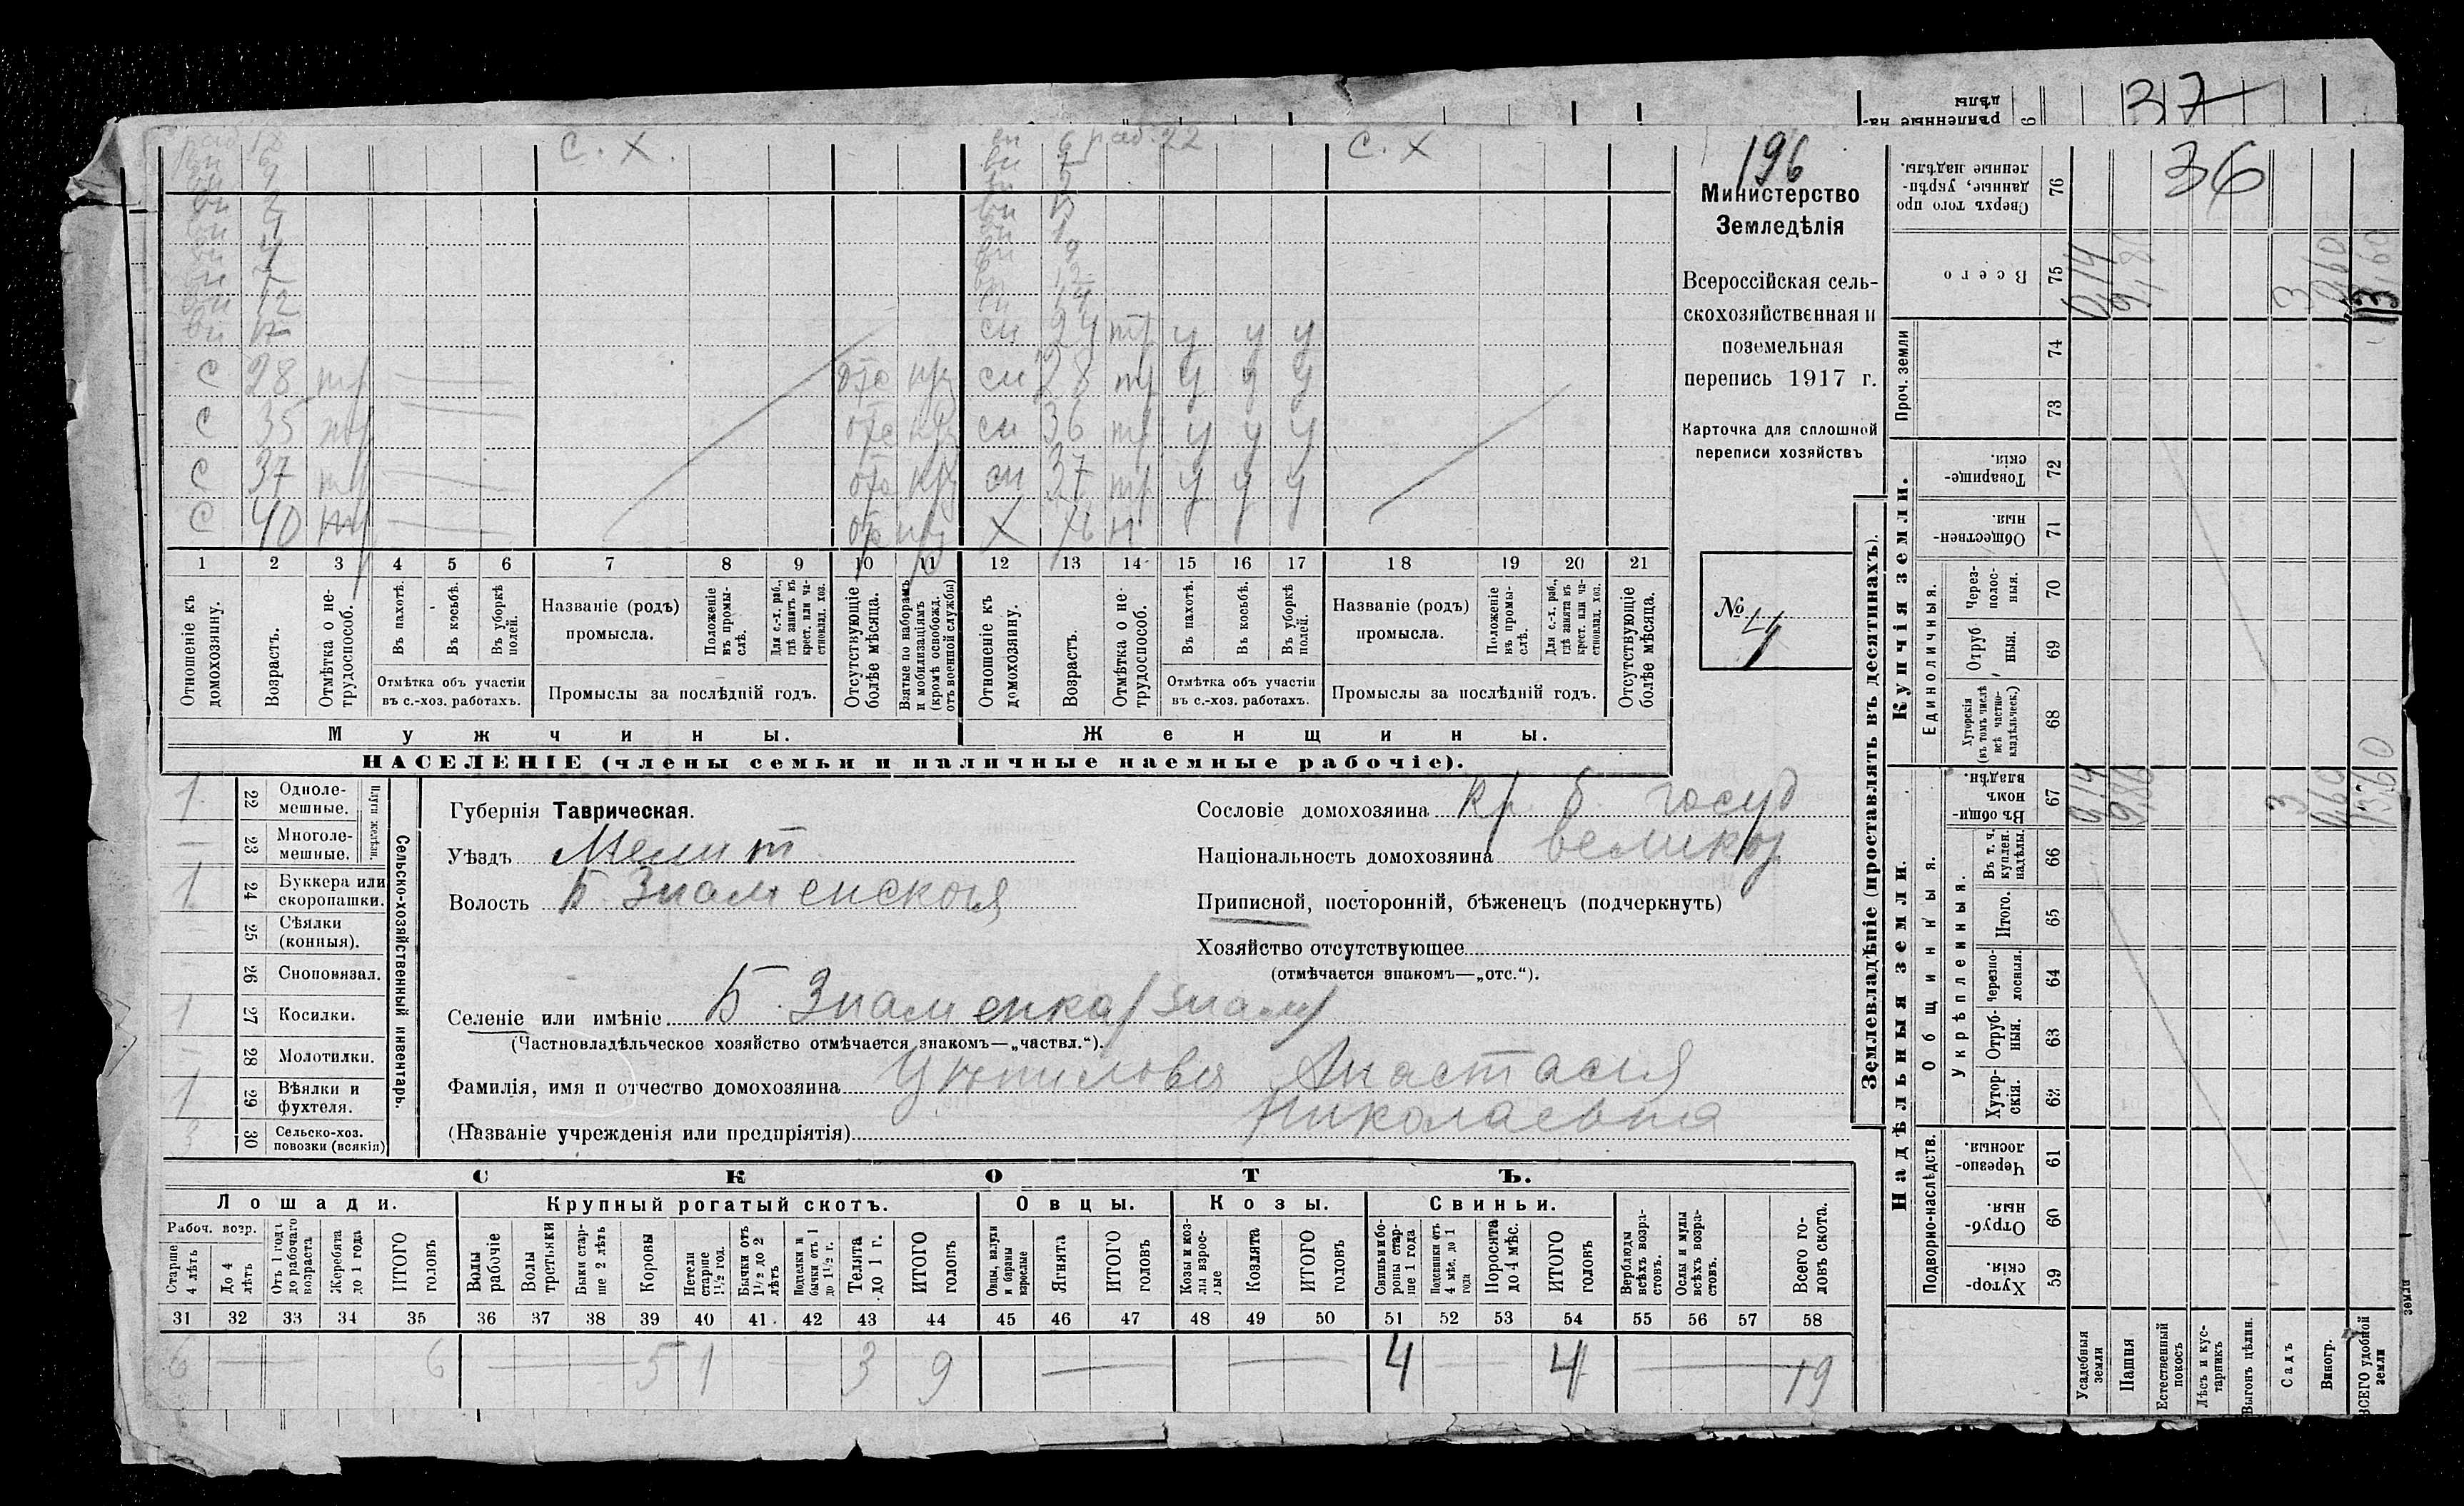 37
дѣлы
рѣпленные на-
раб. 12
С. Х.
6 раб. 22
С. Х
вн 6
вн 7
вн 12
вн 17
вн 12
сн 14
сн 24 тр у у у
С 28 тр отс пр сн 28 тр у у у
С 35 тр отс сн 36 тр у у у
С 37 тр отс сн 37 тр у у у
С 40 тр отс Х н
1 2 3 4 5 6 7 8 9 10 11 12 13 14 15 16 17 18 19 20 21
Отношеніе къ домохозяину.
Возрастъ.
Отмѣтка о не-трудоспособ.
Въ пахотѣ.
Въ косьбѣ.
Въ уборкѣ полей.
Отмѣтка объ участіи
въ с.-хоз. работахъ.
Названіе (родъ)
промысла.
Положеніе въ промы-слѣ.
Для с.-х. раб., гдѣ занятъ въ крест. или ча-стновлад. хоз.
Промыслы за послѣдній годъ.
Отсутствующіе болѣе мѣсяца.
Взятые по наборамъ и мобилизаціямъ (кромѣ освобожд. отъ военной службы)
Отношеніе къ домохозяину.
Возрастъ.
Отмѣтка о не-трудоспособ.
Въ пахотѣ.
Въ косьбѣ.
Въ уборкѣ полей.
Отмѣтка объ участіи
въ с.-хоз. работахъ.
Названіе (родъ)
промысла.
Положеніе въ промы-слѣ.
Для с.-х. раб., гдѣ занята въ крест. или ча-стновлад. хоз.
Промыслы за послѣдній годъ.
Отсутствующіе болѣе мѣсяца.
Мужчины.
Женщины.
НАСЕЛЕНІЕ (члены семьи и наличные наемные рабочіе).
196
Министерство
Земледѣлія
Всероссійская сель-
скохозяйственная и
поземельная
перепись 1917 г.
Карточка для сплошной
переписи хозяйствъ
№ 4
Сельско-хозяйственный инвентарь.
Плуги желѣзн.
1 22 Одноле-мешные.
— 23 Многоле-мешные.
1 24 Буккера или скоропашки.
25 Сѣялки (конныя).
26 Сноповязал.
1 27 Косилки.
— 28 Молотилки.
1 29 Вѣялки и фухтеля.
3 30 Сельско-хоз. повозки (всякія)
Губернія Таврическая.
Уѣздъ Мелит
Волость Б. Знаменская
Сословіе домохозяина кр. б госуд
Національность домохозяина великор
Приписной, посторонній, бѣженецъ (подчеркнуть)
Хозяйство отсутствующее
(отмѣчается знакомъ—„отс.“).
Селеніе или имѣніе Б. Знаменка /Знам/
(Частновладѣльческое хозяйство отмѣчается знакомъ—„частвл.“).
Фамилія, имя и отчество домохозяина Анастасія
(Названіе учрежденія или предпріятія) Николаевна
СКОТЪ.
Лошади.
Крупный рогатый скотъ.
Овцы.
Козы.
Свиньи.
Рабоч. возр.
Старше 4 лѣтъ
До 4 лѣтъ
Отъ 1 года до рабочаго возраста
Жеребята до 1 года
ИТОГО головъ
Волы рабочіе
Волы третьяки
Быки стар-ше 2 лѣтъ
Коровы
Нетели старше 1½ год.
Бычки отъ 1½ до 2 лѣтъ
Подтелки и бычки отъ 1 до 1½ г.
Телята до 1 г.
ИТОГО головъ
Овцы, валухи и бараны взрослые
Ягнята
ИТОГО головъ
Козы и коз-лы взрос-лые
Козлята
ИТОГО головъ
Свиньи и бо-ровы стар-ше 1 года
Подсвинки отъ 4 мѣс. до 1 года
Поросята до 4 мѣс.
ИТОГО головъ
Верблюды всѣхъ возра-стовъ.
Ослы и мулы всѣхъ возра-стовъ.
Всего го-ловъ скота.
31 32 33 34 35 36 37 38 39 40 41 42 43 44 45 46 47 48 49 50 51 52 53 54 55 56 57 58
6 — 6 — 5 1 — 3 9 — — 4 — 4 — 19
Землевладѣніе (проставлять въ десятинахъ).
Надѣльныя земли.
Купчія земли.
Проч. земли
Подворно-наслѣдств.
Общинныя.
Укрѣпленныя.
Единоличныя.
36
Сверхъ того про данные, укрѣп-ленные надѣлы. 76
Всего 75
74
73
Товарище-скія. 72
Обществен-ныя. 71
Через-полос-ныя. 70
Отруб ныя. 69
Хуторскія (въ томъ числѣ всѣ частно-владѣльческ.) 68
Въ общи-номъ владѣн. 67
Въ т. ч. куплен. надѣлы. 66
Итого. 65
Черезпо-лосныя. 64
Отруб-ныя. 63
Хутор-скія. 62
Черезпо-лосныя. 61
Отруб-ныя. 60
Хутор-скія. 59
0,14 9,86 3 0,60 13,60
0,14 9,86 3 0,60 13,60
Усадебныя земли
Пашня
Естественный покосъ
Лѣсъ и кус-тарникъ
Выгонъ цѣлин.
Садъ
Виногр.
ВСЕГО удобной земли
земли